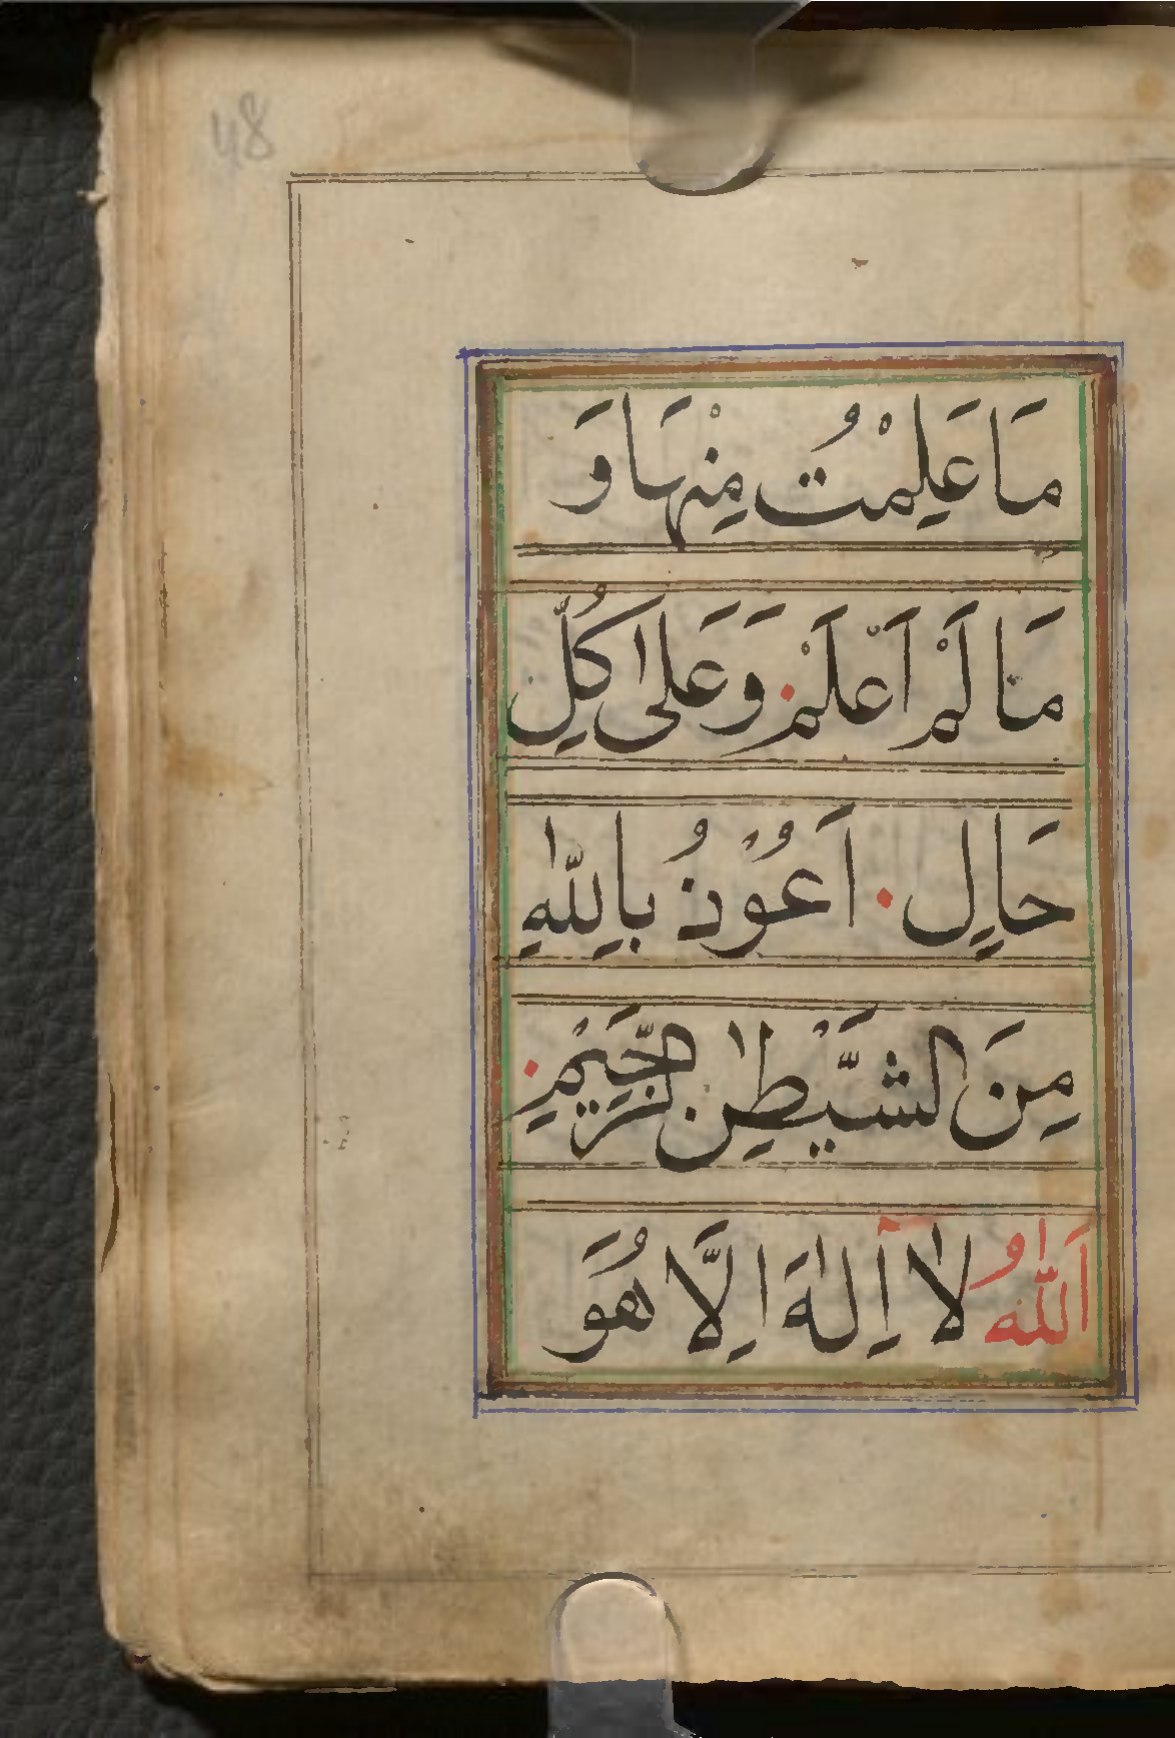 48
مَا عَلِمْتُ مِنْهَا وَ
مَا لَمْ اَعْلَمْ وَعَلٰى كُلِّ
حَالٍ اَعُوْذُ بِاللّٰهِ
مِنَ الشَّيْطٰنِ الرَّجِيْمِ
اَللّٰهُ لَآ اِلٰهَ اِلَّا هُوَ